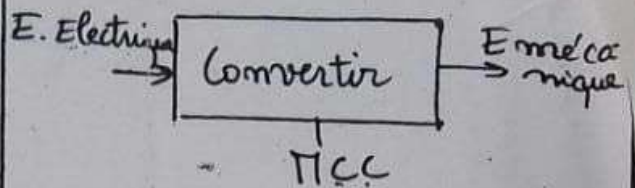 E. Electrique
Convertir
E méca
nique
MCC